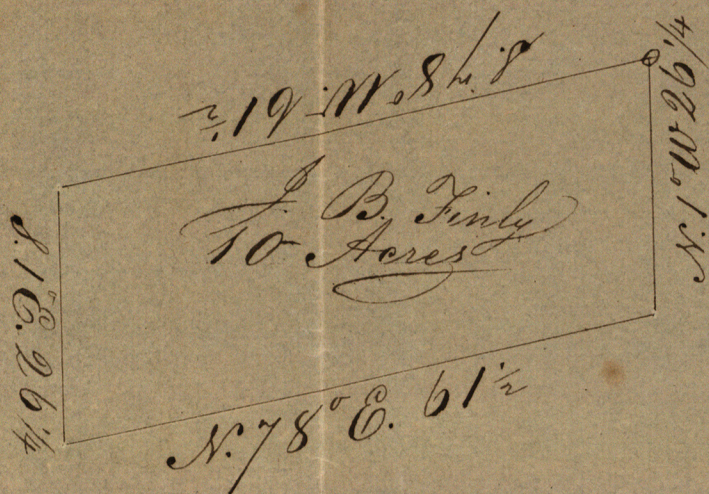 S. 78° W. 61½
N 1° W 26¼
J B. Finly
10 Acres
S. 1° E. 26¼
N. 78° E. 61½